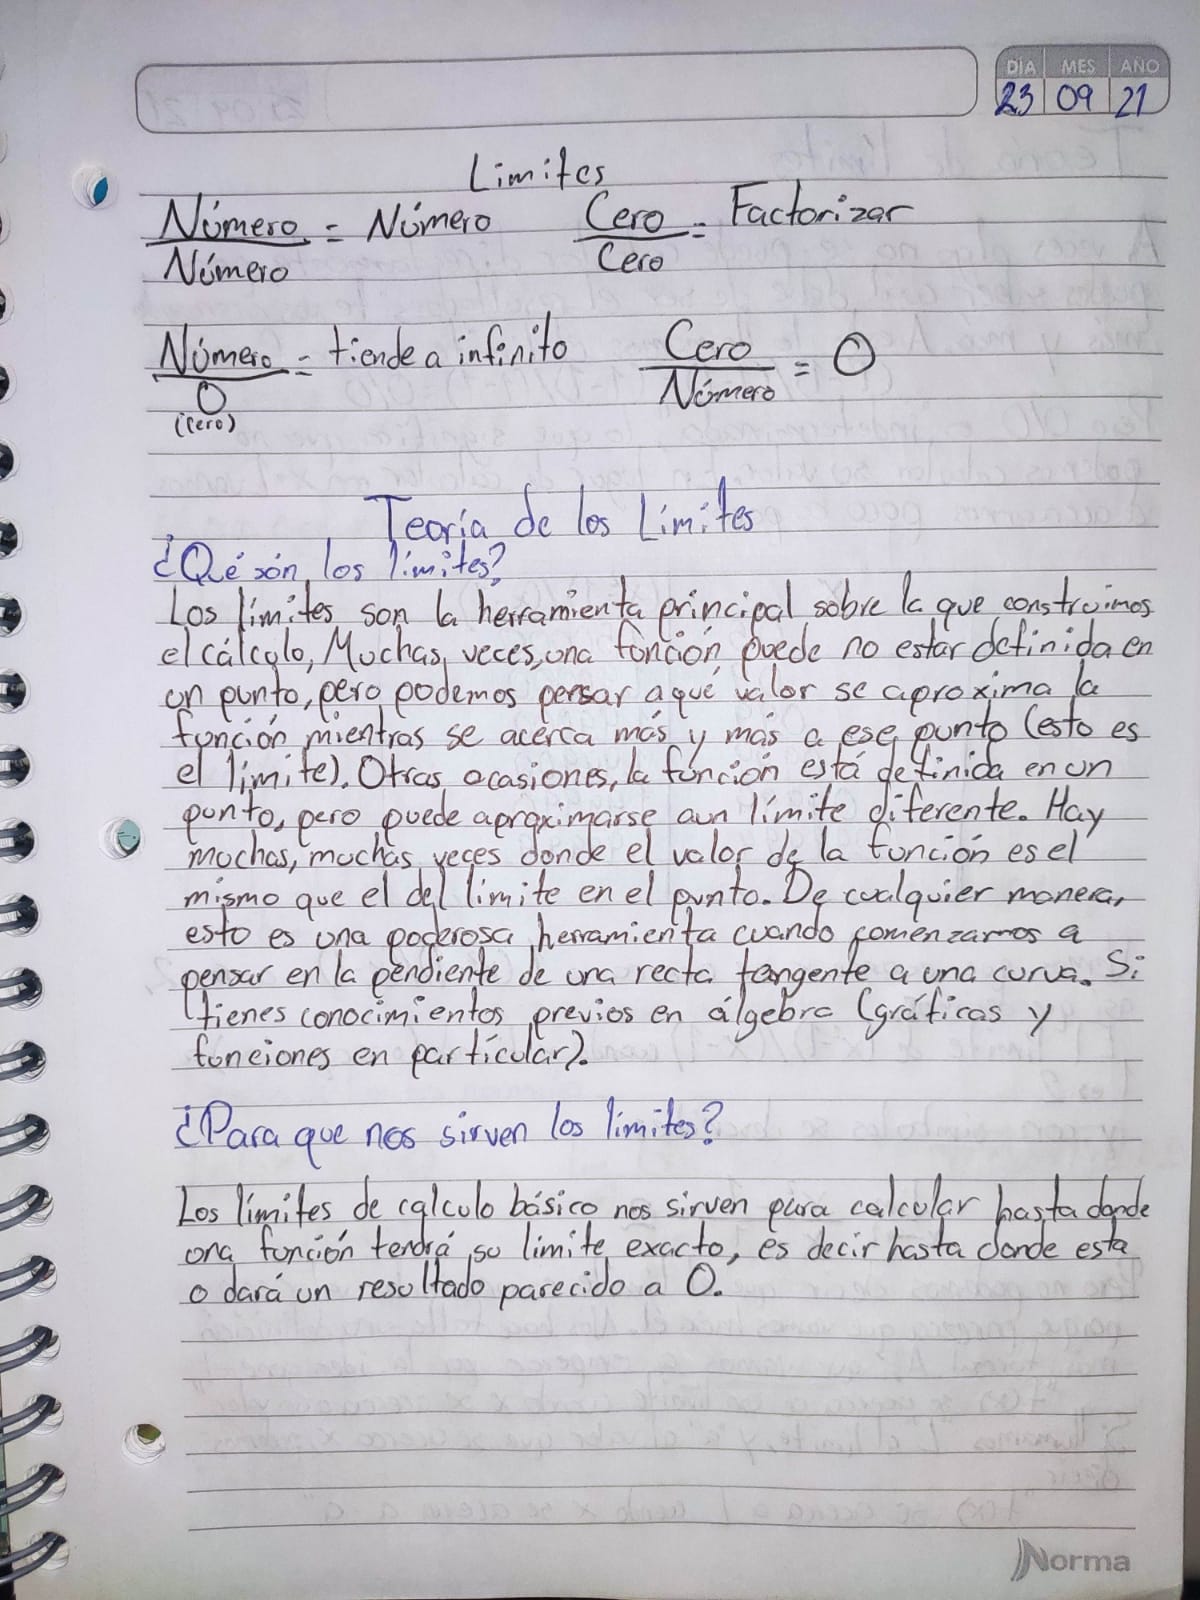 DÍA MES AÑO
23 09 21
Limites
Número = Número Cero = Factorizar
Número Cero
Número = tiende a infinito Cero = 0
0 Número
(cero)
Teoría de los Limites
¿Qué són los límites?
Los límites son la herramienta principal sobre la que construimos
el cálculo, Muchas veces, una función puede no estar definida en
un punto, pero podemos pensar a qué valor se aproxima la
función mientras se acerca más y más a ese punto (esto es
el límite). Otras ocasiones, la función está definida en un
punto, pero puede aproximarse a un límite diferente. Hay
muchas, muchas veces donde el valor de la función es el
mismo que el del limite en el punto. De cualquier manera,
esto es una poderosa herramienta cuando comenzamos a
pensar en la pendiente de una recta tangente a una curva. Si
tienes conocimientos previos en álgebra (gráficas y
funciones en partícular).
¿Para que nos sirven los limites?
Los límites de calculo básico nos sirven para calcular hasta donde
una función tendrá su limite exacto, es decir hasta donde esta
o dará un resultado parecido a 0.
Norma